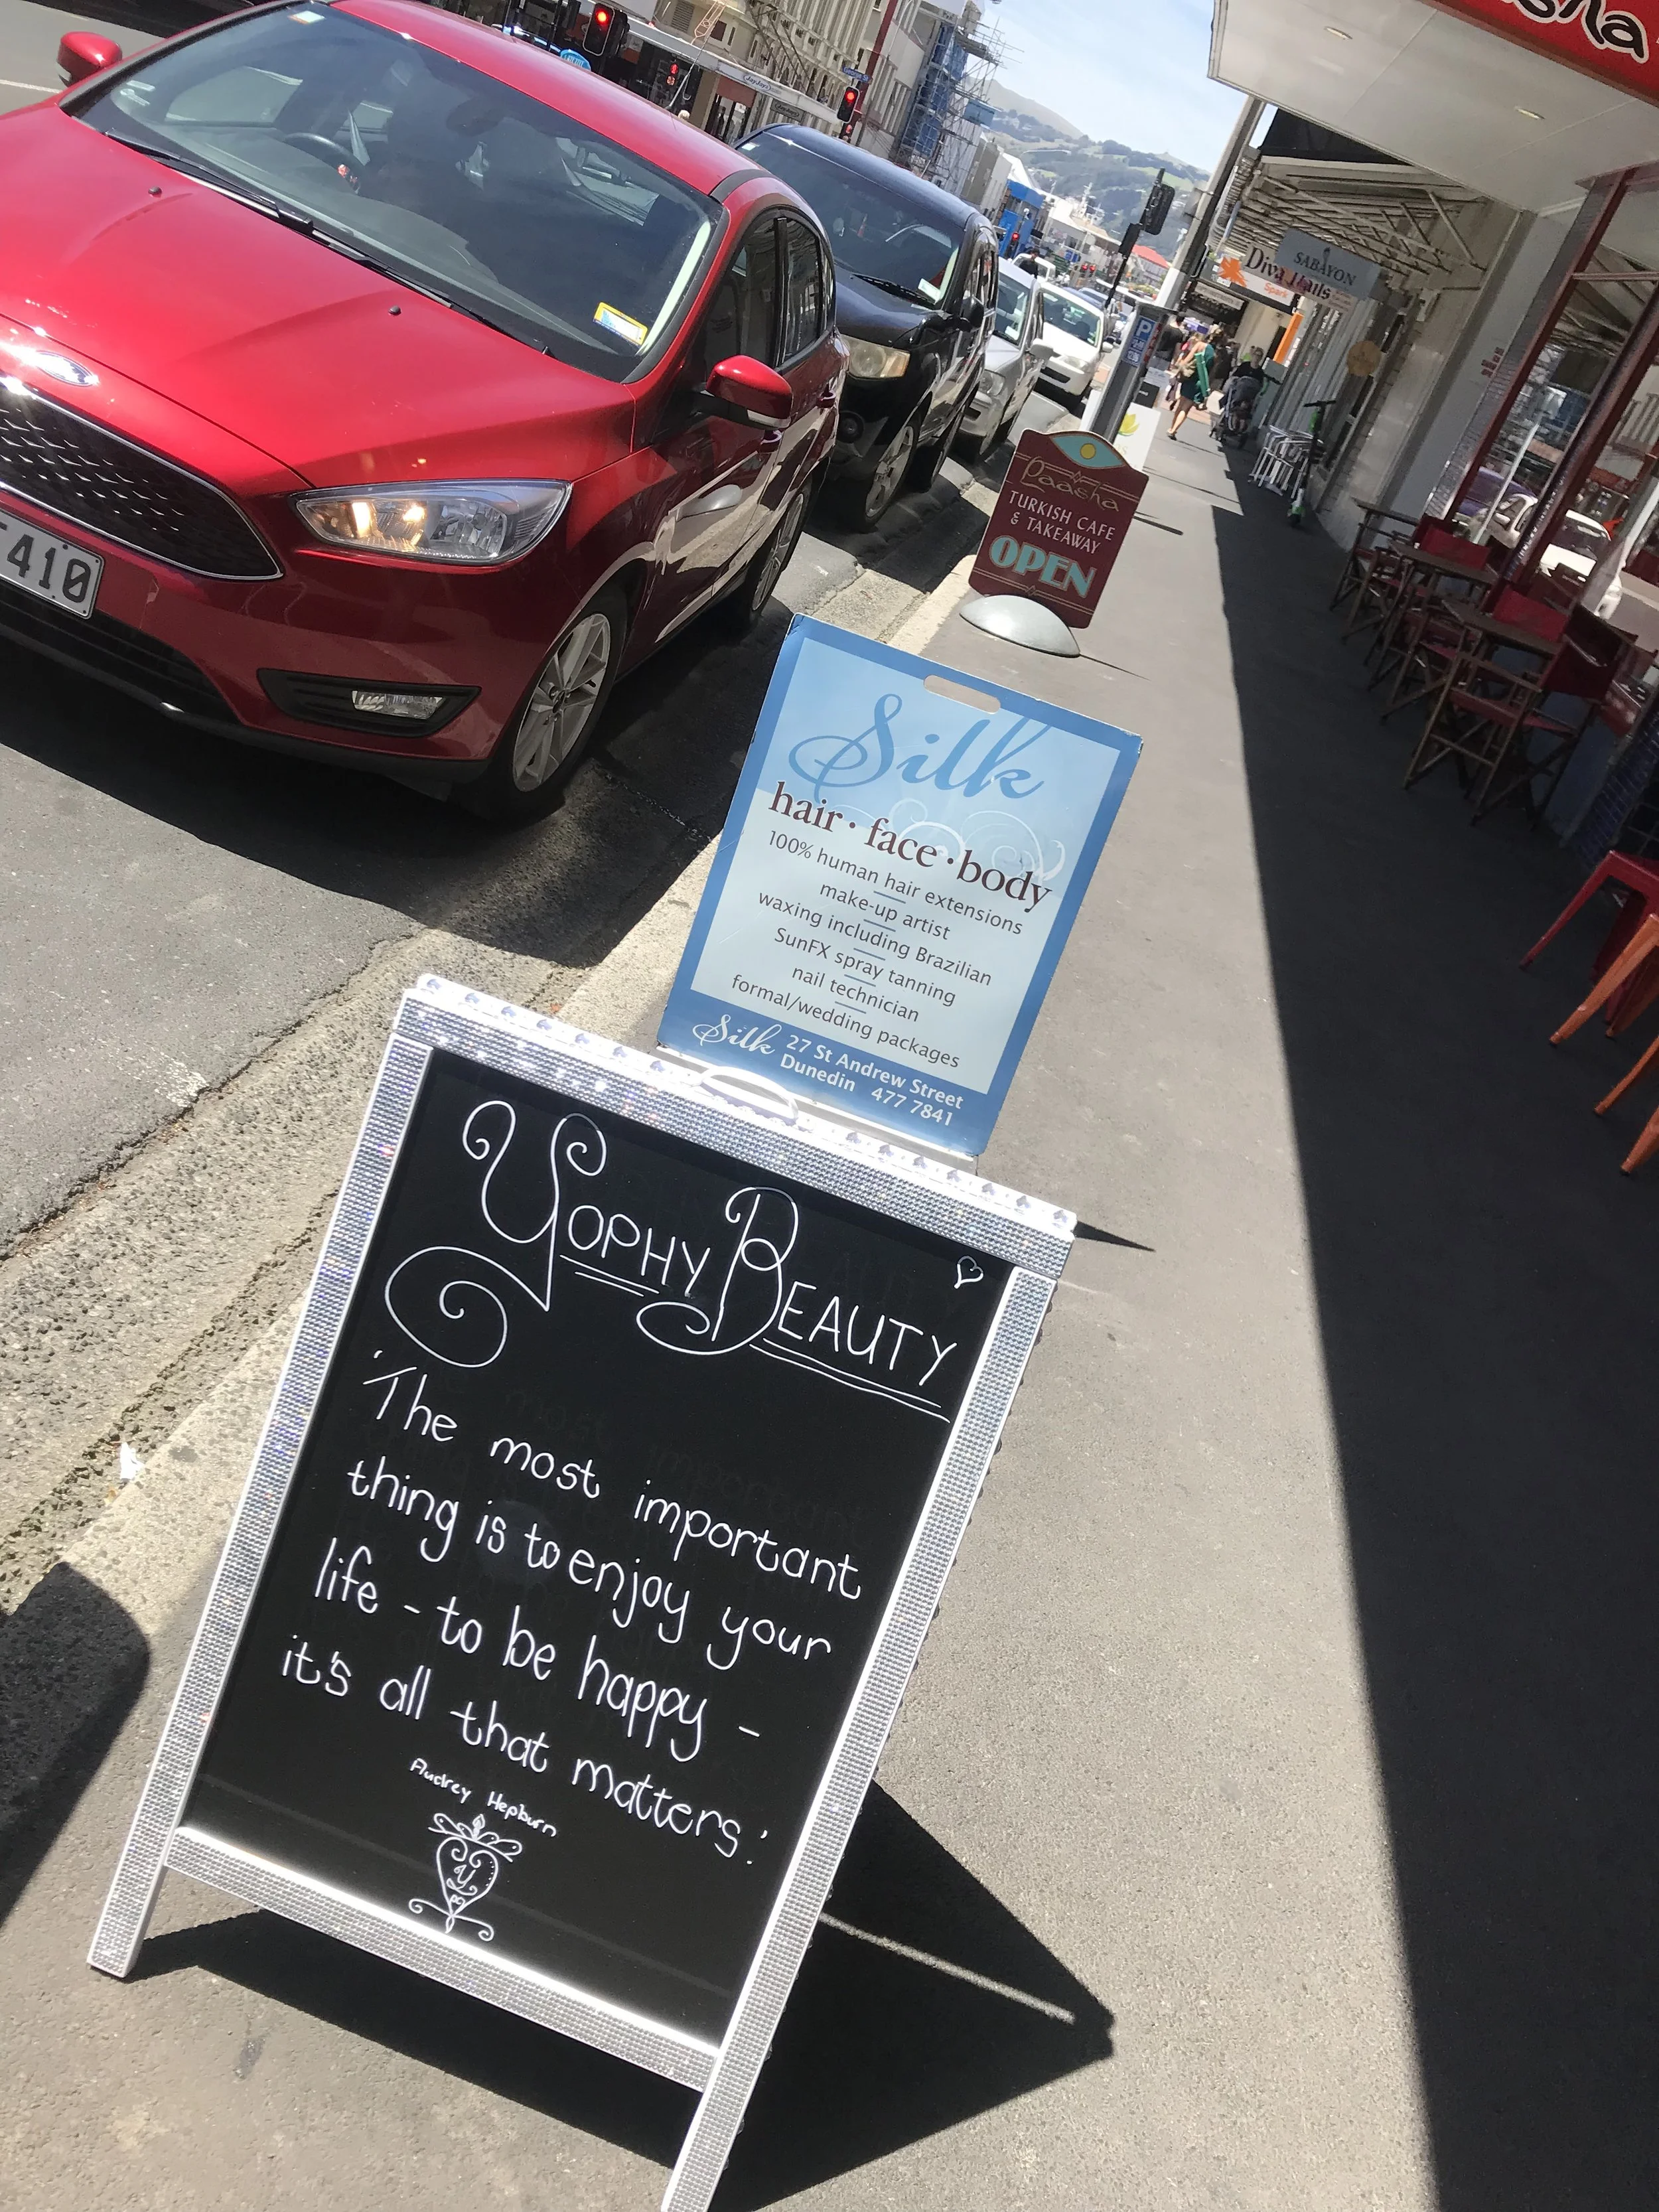 Yophy Beauty
'The most important
thing is to enjoy your
life - to be happy -
it's all that matters.'
Audrey Hepburn
Silk
hair · face · body
100% human hair extensions
make-up artist
waxing including Brazilian
SunFX spray tanning
nail technician
formal/wedding packages
Silk 27 St Andrew Street
Dunedin 477 7841
Paasha
TURKISH CAFE
& TAKEAWAY
OPEN
410
SABAYON
Diva Nails
Spark
P